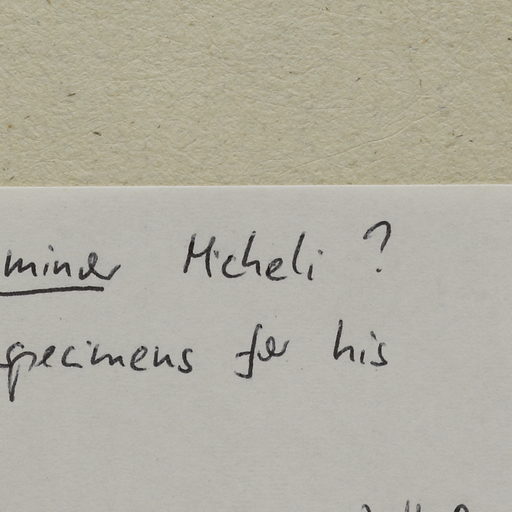 minor Micheli ?
specimens for his